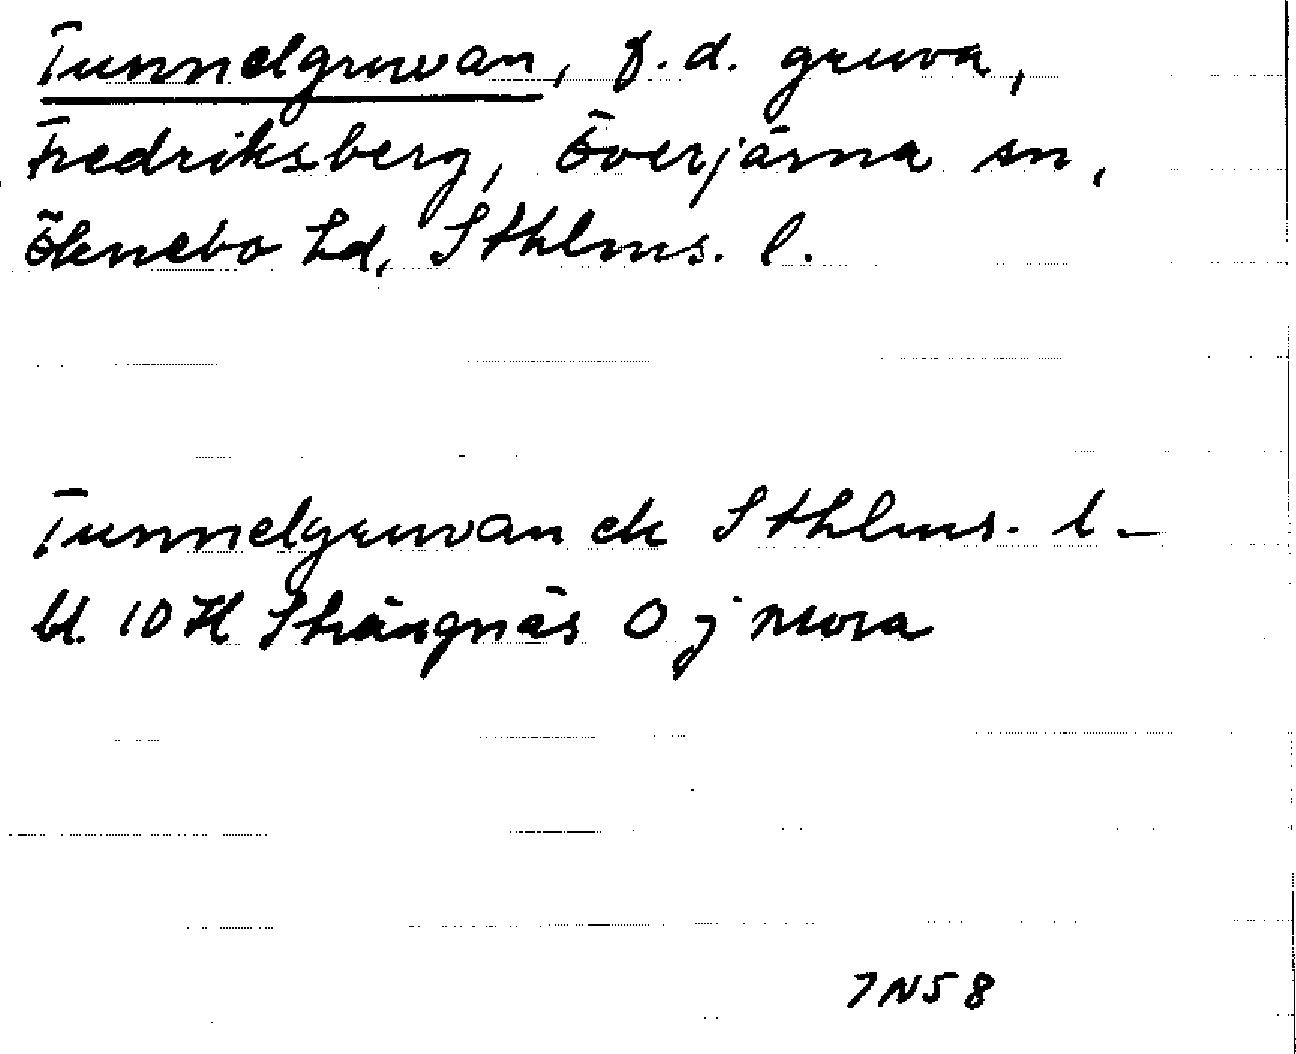 Tunnelgruvan, f.d. gruva,
Fredriksberg, Överjärna sn,
Öknebo hd, Sthlms. l.
Tunnelgruvan ek Sthlms. l -
bl. 10 H Strängnäs 0 j Mora
7N58